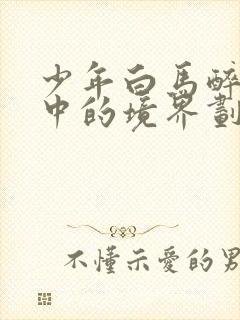 少年白馬醉
中的境界劃
不懂示愛的男